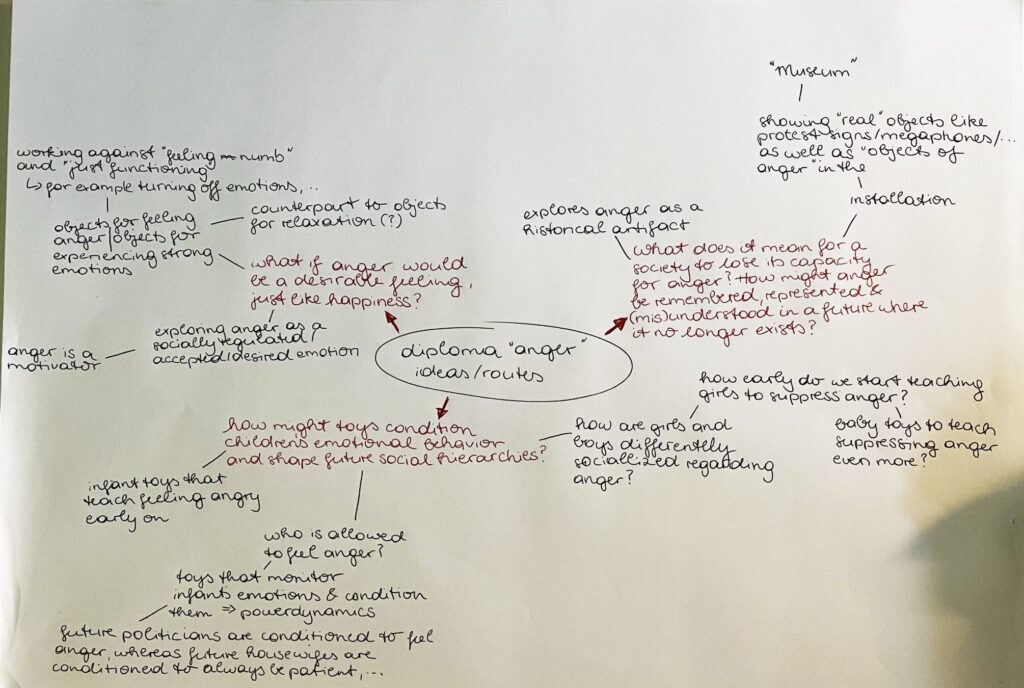 "Museum"
showing "real" objects like
protest signs/megaphones/...
as well as "objects of
anger" in the
installation
explores anger as a
historical artifact
what does it mean for a
society to lose its capacity
for anger? How might anger
be remembered, represented &
(mis)understood in a future where
it no longer exists?
working against "feeling numb"
and "just functioning"
↳ for example turning off emotions,..
objects for feeling
anger/objects for
experiencing strong
emotions
counterpart to objects
for relaxation (?)
what if anger would
be a desirable feeling,
just like happiness?
exploring anger as a
socially regulated/
accepted/desired emotion
anger is a
motivator
diploma "anger"
ideas/routes
how might toys condition
childrens emotional behavior
and shape future social hierarchies?
infant toys that
teach feeling angry
early on
who is allowed
to feel anger?
toys that monitor
infants emotions & condition
them ⇒ powerdynamics
future politicians are conditioned to feel
anger, whereas future housewifes are
conditioned to always be patient,...
how are girls and
boys differently
sociallized regarding
anger?
how early do we start teaching
girls to suppress anger?
baby toys to teach
suppressing anger
even more?